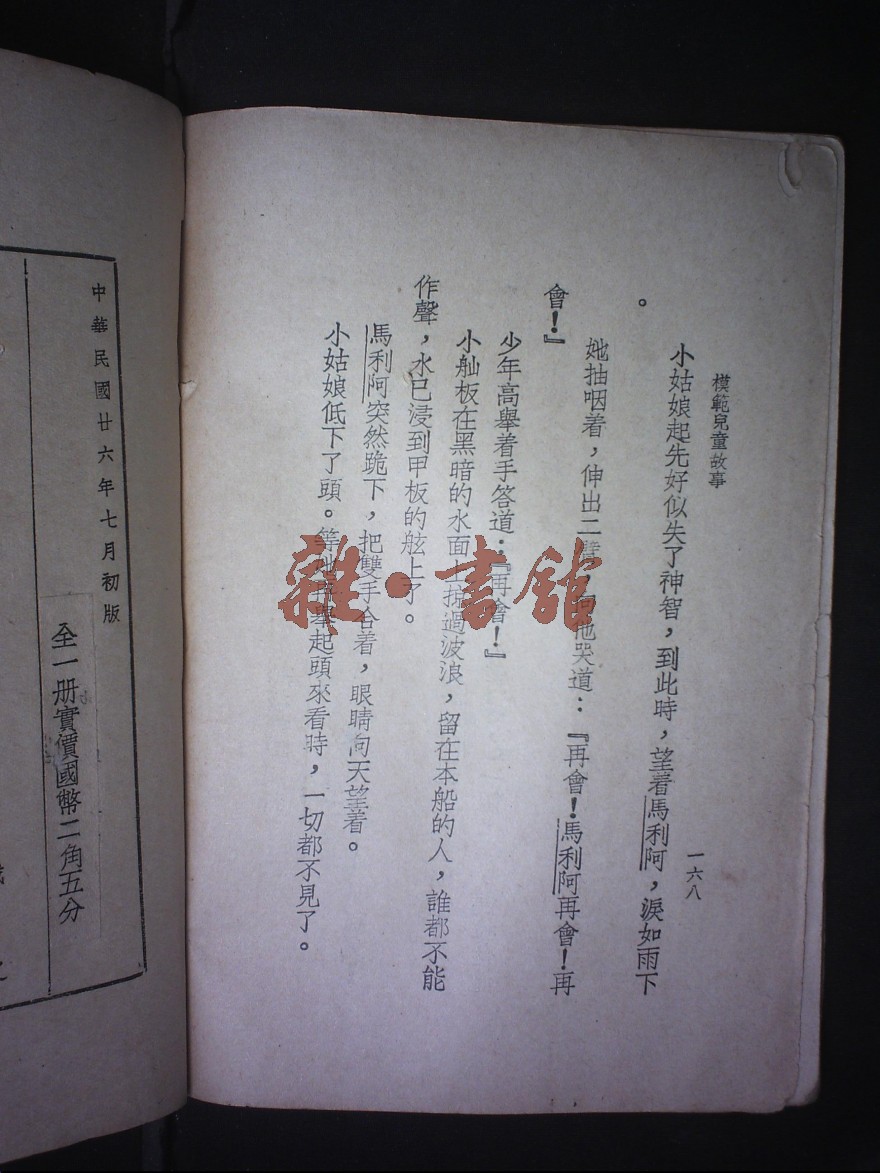 模範兒童故事
一六八
小姑娘起先好似失了神智，到此時，望着馬利阿，淚如雨下
。
她抽咽着，伸出二臂，向他哭道：『再會！馬利阿再會！再
會！』
少年高舉着手答道：『再會！』
小舢板在黑暗的水面上掠過波浪，留在本船的人，誰都不能
作聲，水已浸到甲板的舷上了。
馬利阿突然跪下，把雙手合着，眼睛向天望着。
小姑娘低下了頭。等她再舉起頭來看時，一切都不見了。
雜·書館
中華民國廿六年七月初版
全一册實價國幣二角五分